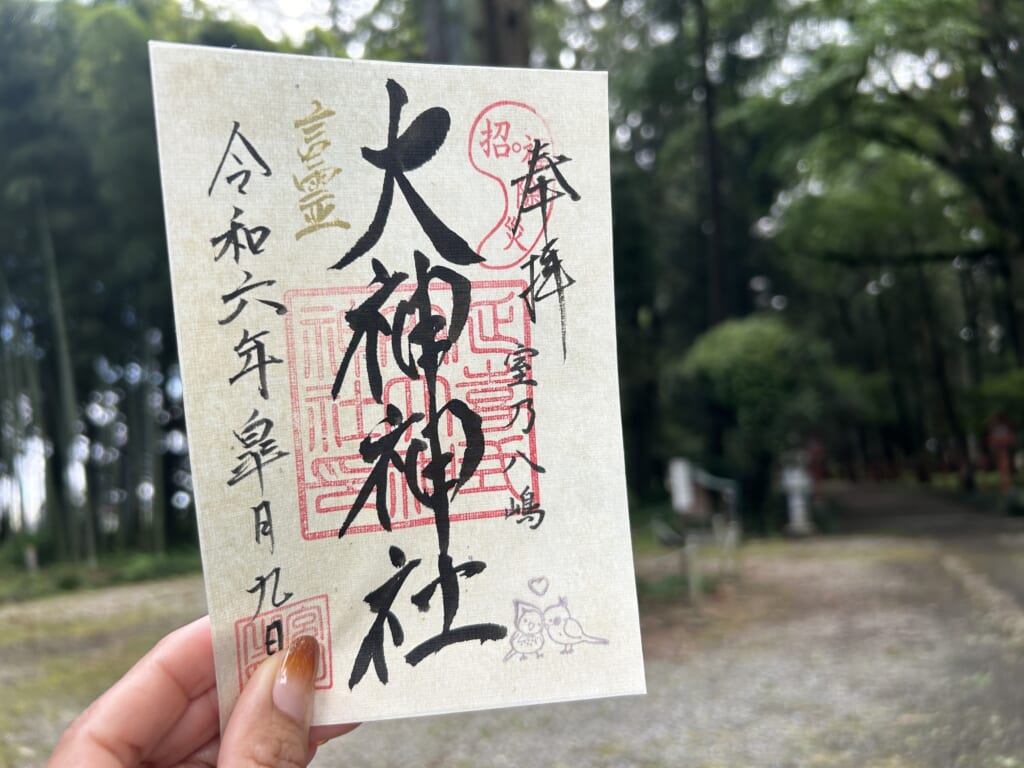 奉拝
室乃八嶋
大神神社
言霊
令和六年皐月九日